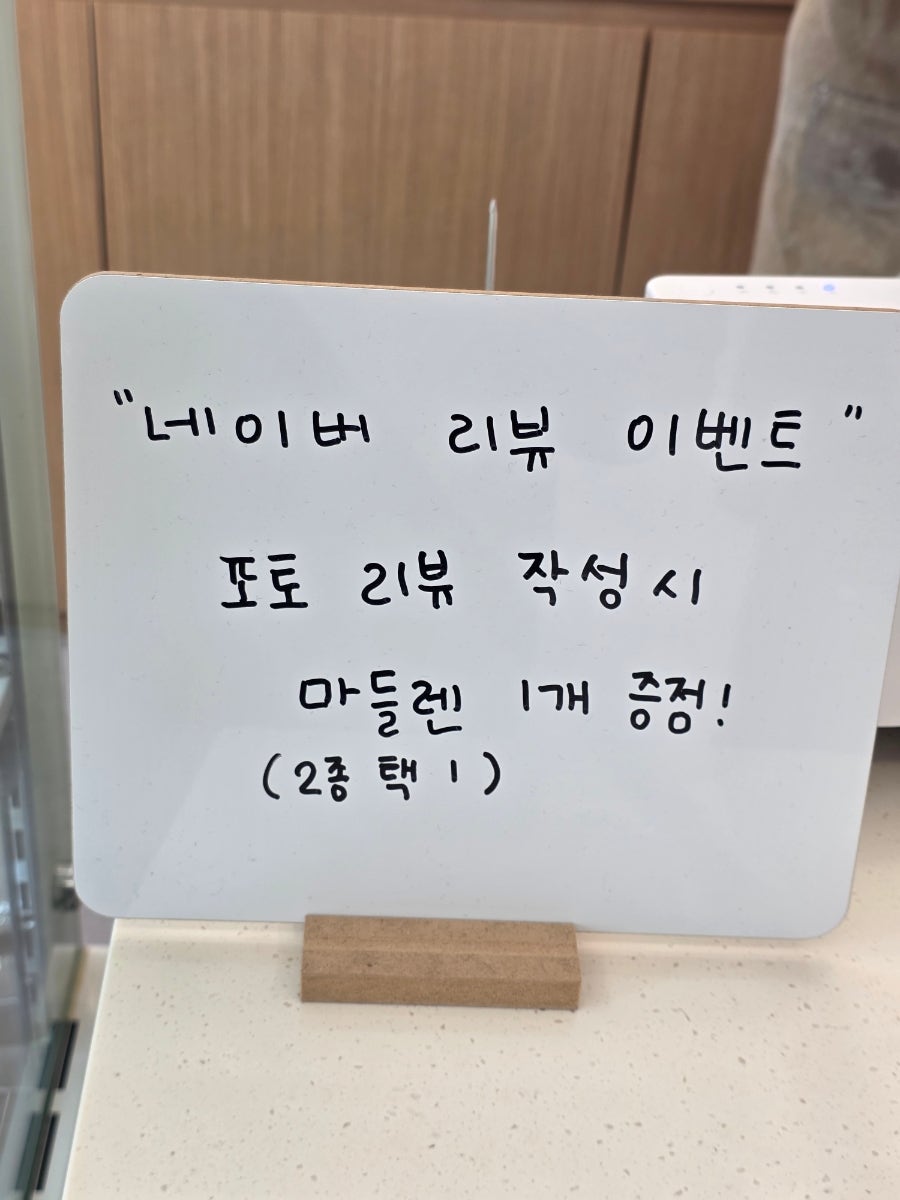 "네이버 리뷰 이벤트"
포토 리뷰 작성 시
마들렌 1개 증정!
(2종 택 1)